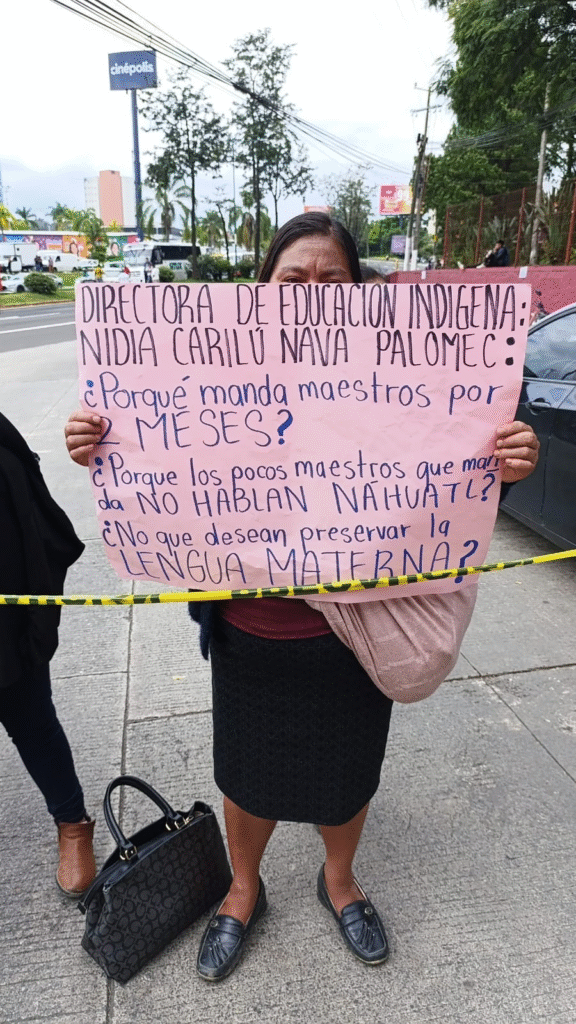 cinépolis
DIRECTORA DE EDUCACION INDIGENA:
NIDIA CARILÚ NAVA PALOMEC:
¿Porqué manda maestros por
2 MESES?
¿Porque los pocos maestros que man
da NO HABLAN NÁHUATL?
¿No que desean preservar la
LENGUA MATERNA?